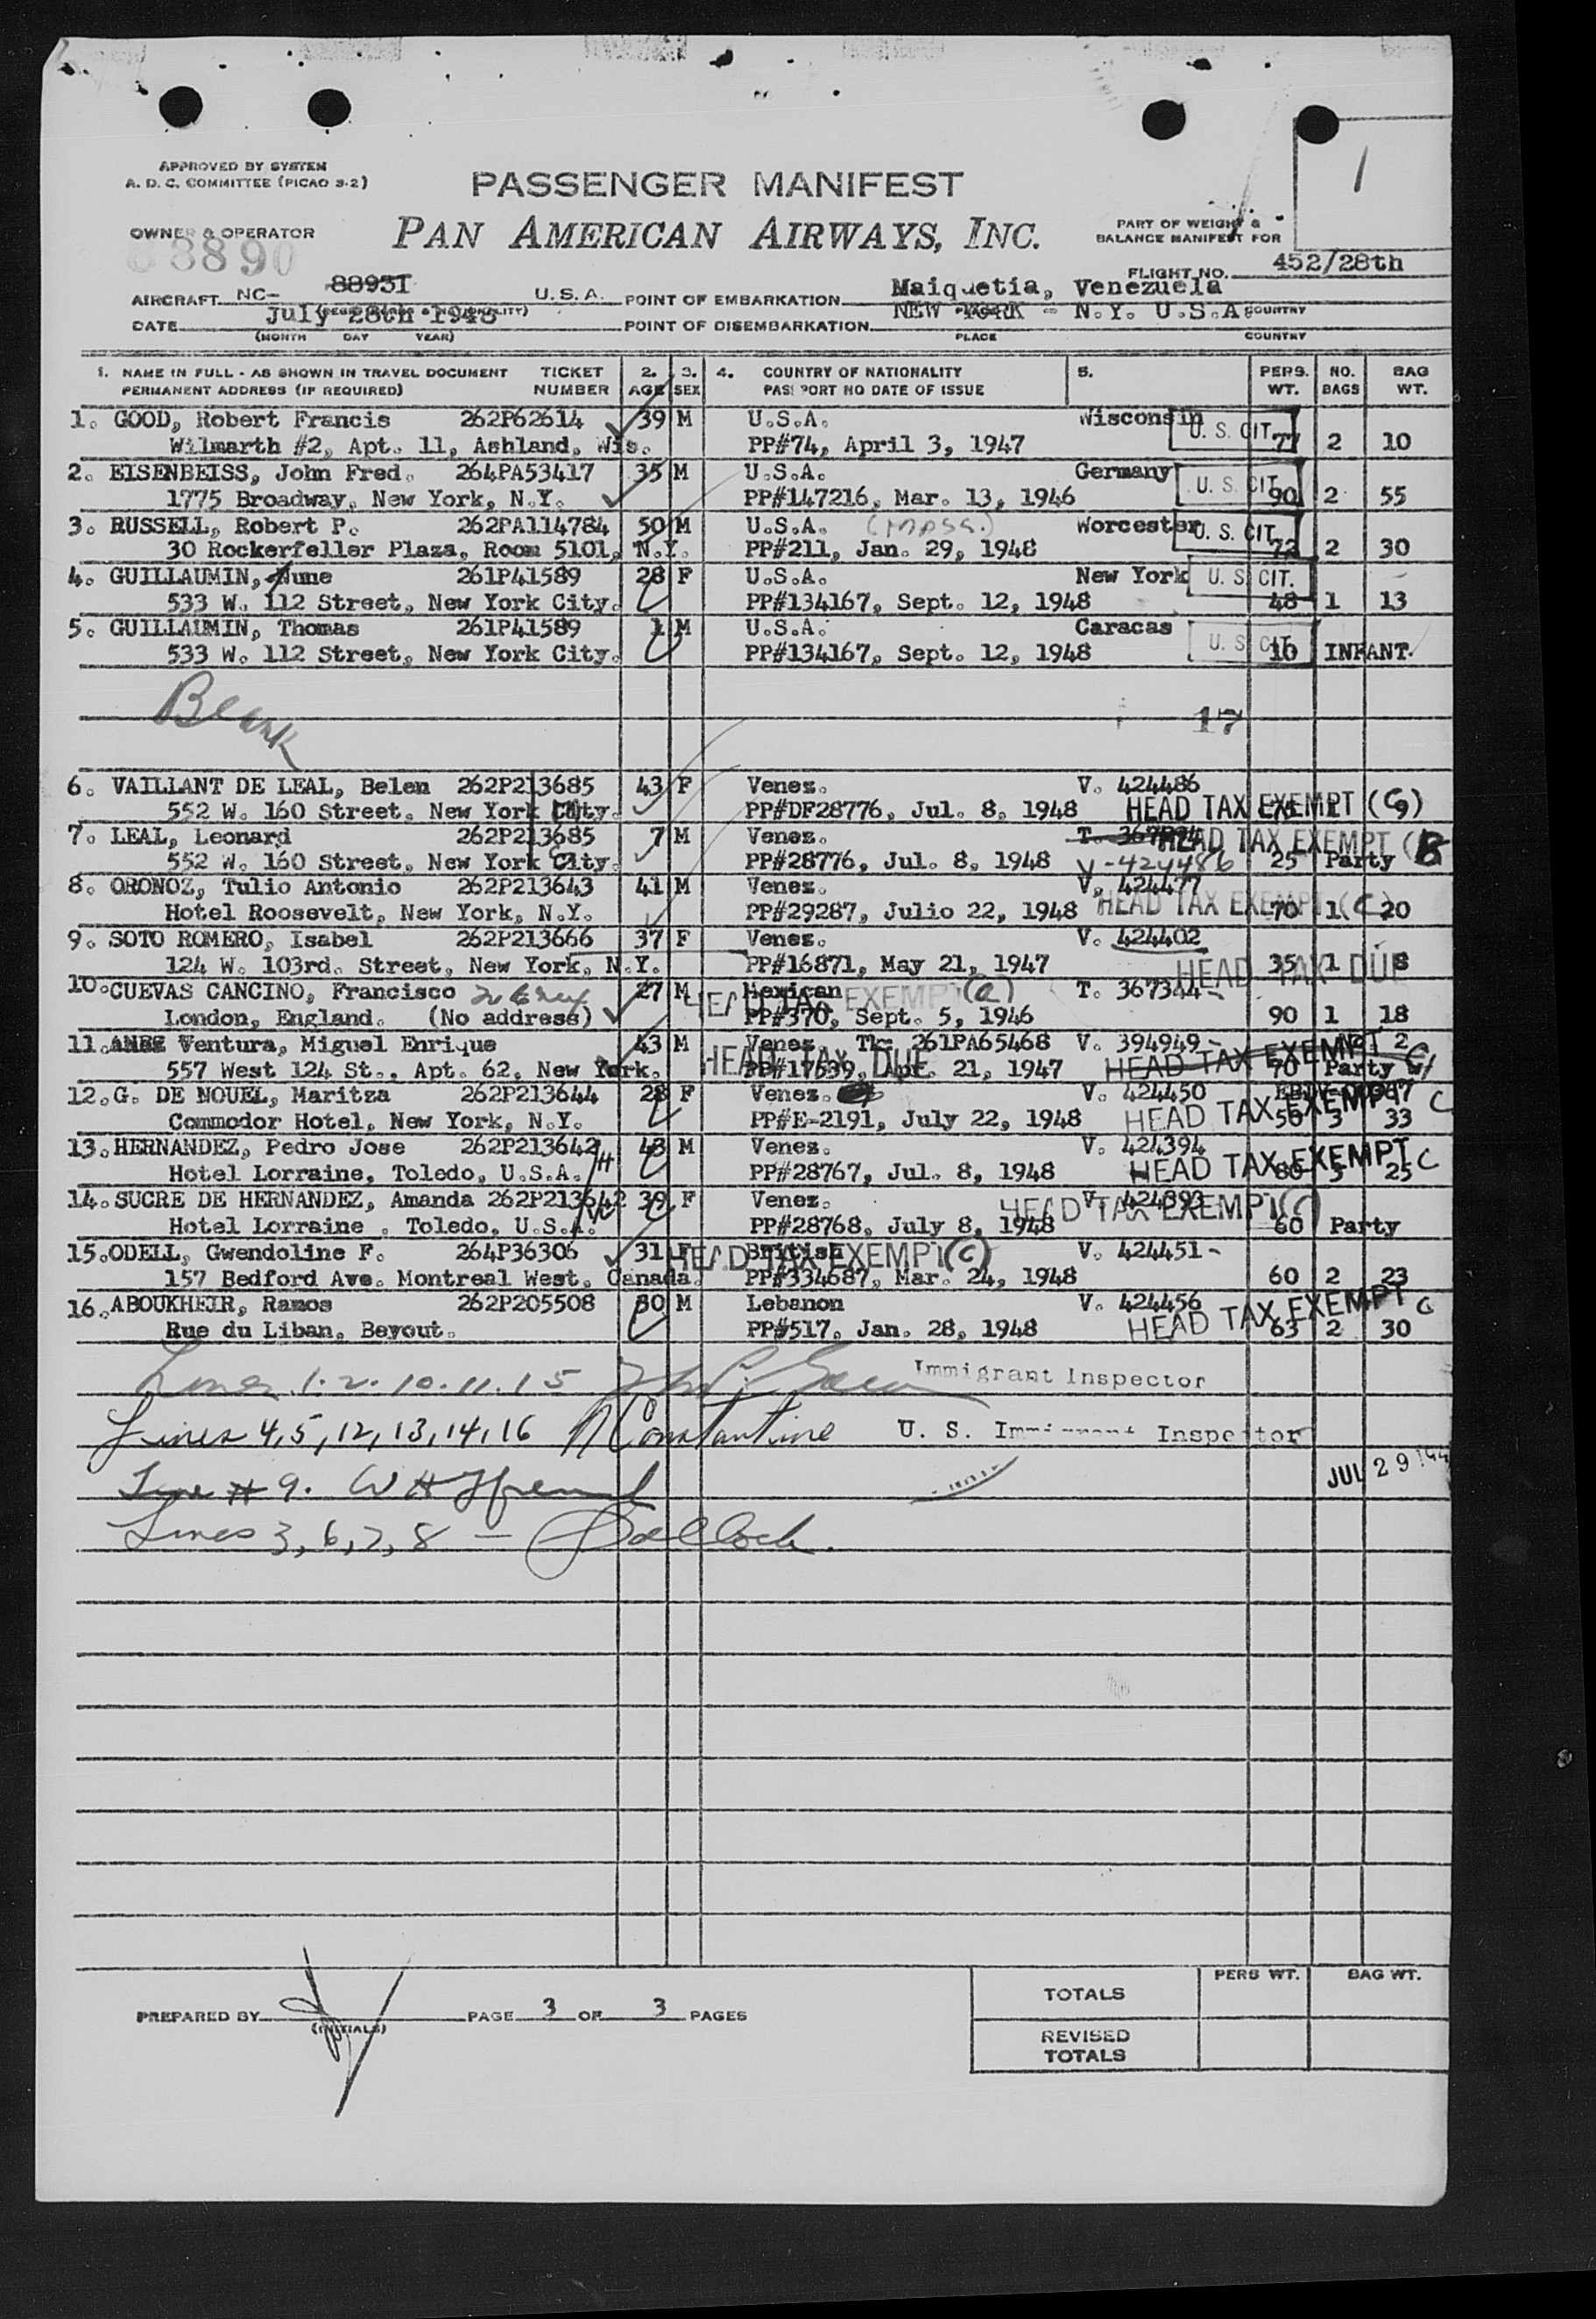 APPROVED BY SYSTEM
A. D. C. COMMITTEE (PICAO 3-2)
PASSENGER MANIFEST
PAN AMERICAN AIRWAYS, INC.
1
OWNER & OPERATOR
PART OF WEIGHT &
BALANCE MANIFEST FOR
FLIGHT NO. 452/28th
AIRCRAFT NC- 88931 U.S.A. POINT OF EMBARKATION Maiquetia, Venezuela
DATE July 28th 1948 POINT OF DISEMBARKATION NEW YORK - N.Y. U.S.A. COUNTRY
(MONTH DAY YEAR) PLACE COUNTRY
1. NAME IN FULL - AS SHOWN IN TRAVEL DOCUMENT TICKET 2. 3. 4. COUNTRY OF NATIONALITY 5. PERS. NO. BAG
PERMANENT ADDRESS (IF REQUIRED) NUMBER AGE SEX PASSPORT NO DATE OF ISSUE WT. BAGS WT.
1. GOOD, Robert Francis 262P62614 39 M U.S.A. Wisconsin U. S. CIT.
Wilmarth #2, Apt. 11, Ashland, Wis. PP#74, April 3, 1947 77 2 10
2. EISENBEISS, John Fred. 264PA53417 35 M U.S.A. Germany U. S. CIT.
1775 Broadway, New York, N.Y. PP#147216, Mar. 13, 1946 90 2 55
3. RUSSELL, Robert P. 262PA114784 50 M U.S.A. (Mass.) Worcester U. S. CIT.
30 Rockerfeller Plaza, Room 5101, N.Y. PP#211, Jan. 29, 1948 72 2 30
4. GUILLAUMIN, June 261P41589 28 F U.S.A. New York U. S. CIT.
533 W. 112 Street, New York City. PP#134167, Sept. 12, 1948 48 1 13
5. GUILLAUMIN, Thomas 261P41589 1 M U.S.A. Caracas U. S. CIT.
533 W. 112 Street, New York City. PP#134167, Sept. 12, 1948 10 INFANT.
Blank
17
6. VAILLANT DE LEAL, Belen 262P213685 43 F Venez. V. 424486
552 W. 160 Street, New York City. PP#DF28776, Jul. 8, 1948 HEAD TAX EXEMPT (C)
7. LEAL, Leonard 262P213685 7 M Venez. HEAD TAX EXEMPT (B
552 W. 160 Street, New York City. PP#28776, Jul. 8, 1948 V-424486 25 Party
8. ORONOZ, Tulio Antonio 262P213643 41 M Venez. V. 424477
Hotel Roosevelt, New York, N.Y. PP#29287, Julio 22, 1948 HEAD TAX EXEMPT (C 70 1 20
9. SOTO ROMERO, Isabel 262P213666 37 F Venez. V. 424402
124 W. 103rd. Street, New York, N.Y. PP#16871, May 21, 1947 HEAD TAX DUE 35 1 8
10. CUEVAS CANCINO, Francisco 27 M Mexican HEAD TAX EXEMPT (a) T. 367344-
London, England. (No address) PP#370, Sept. 5, 1946 90 1 18
11. AMEZ Ventura, Miguel Enrique 43 M Venez. Tk: 261PA65468 V. 394949-
557 West 124 St., Apt. 62, New York. HEAD TAX DUE PP#17539, Apt. 21, 1947 HEAD TAX EXEMPT 70 Party
12. G. DE NOUEL, Maritza 262P213644 28 F Venez. V. 424450
Commodor Hotel, New York, N.Y. PP#E-2191, July 22, 1948 HEAD TAX EXEMPT C 50 3 33
13. HERNANDEZ, Pedro Jose 262P213642 43 M Venez. V. 424394
Hotel Lorraine, Toledo, U.S.A. PP#28767, Jul. 8, 1948 HEAD TAX EXEMPT C 80 3 25
14. SUCRE DE HERNANDEZ, Amanda 262P213642 39 F Venez. V. 424393 HEAD TAX EXEMPT (C)
Hotel Lorraine , Toledo, U.S.A. PP#28768, July 8, 1948 60 Party
15. ODELL, Gwendoline F. 264P36306 31 F British HEAD TAX EXEMPT (C) V. 424451-
157 Bedford Ave. Montreal West, Canada. PP#334687, Mar. 24, 1948 60 2 23
16. ABOUKHEIR, Ramos 262P205508 30 M Lebanon V. 424456
Rue du Liban, Beyout. PP#517, Jan. 28, 1948 HEAD TAX EXEMPT C 63 2 30
Lines 1. 2. 10. 11. 15 Immigrant Inspector
Lines 4, 5, 12, 13, 14, 16 N Constantine U. S. Immigrant Inspector
JUL 29
Line # 9.
Lines 3, 6, 7, 8 —
PREPARED BY (INITIALS) PAGE 3 OF 3 PAGES
TOTALS PERS WT. BAG WT.
REVISED
TOTALS